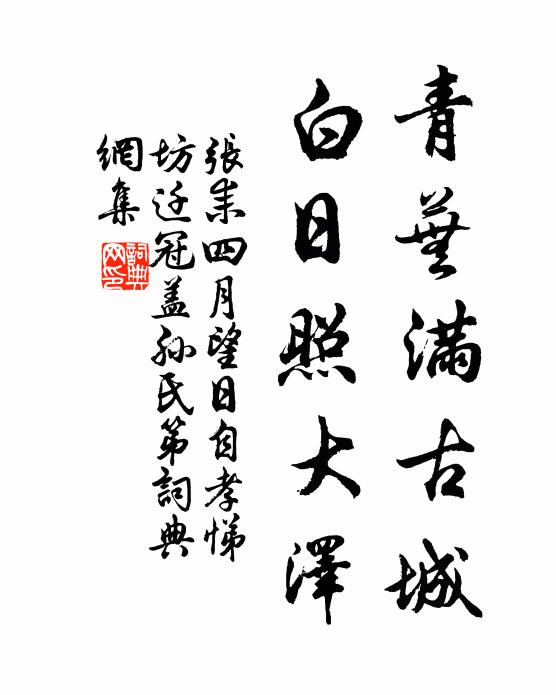 青蕪滿古城
白日照大澤
張耒四月望日自孝悌
坊迁冠盖孙氏第詞典
網集
詞典
网印